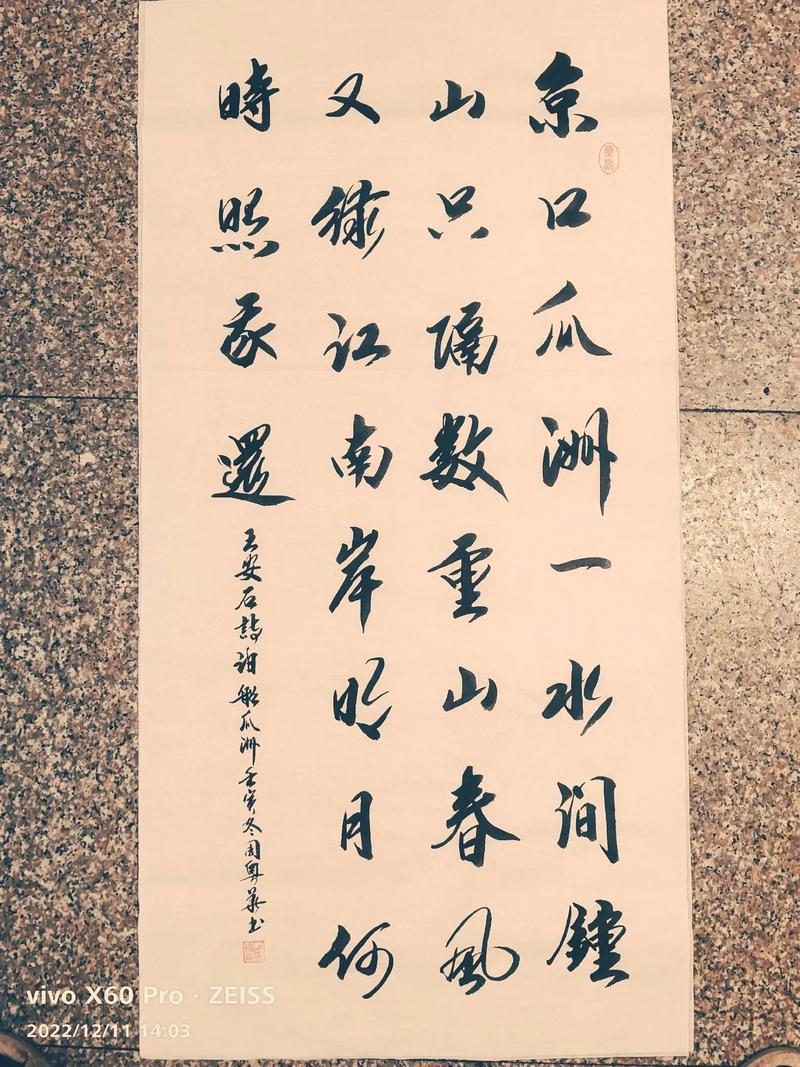 京口瓜洲一水间鐘
山只隔数重山春風
又绿江南岸明月何
時照我還
王安石詩泊船瓜洲壬寅冬周粤華书
vivo X60 Pro · ZEISS
2022/12/11 14:03